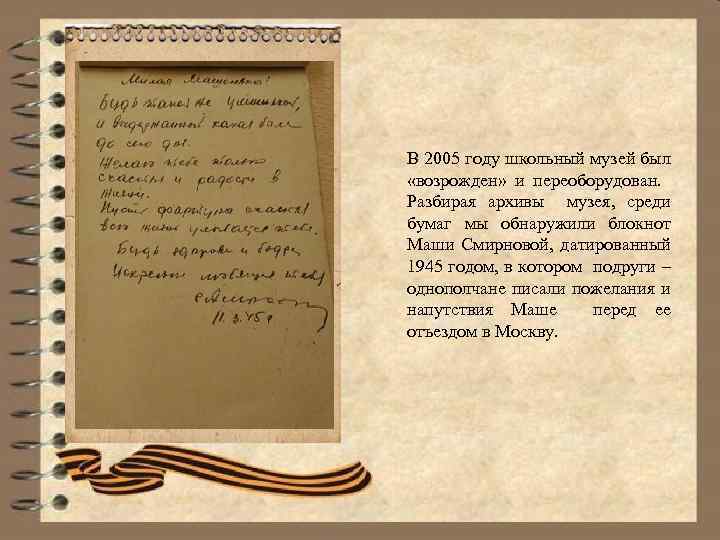 Милая Машенька!
Будь такой же
и выдержанной какой была
до сего дня.
Желаю тебе только
счастья и радости в
жизни.
Пусть фортуна счастья
всю жизнь улыбается тебе.
Будь здорова и бодра
Искренне любящая тебя
11.3.45г
В 2005 году школьный музей был
«возрожден» и переоборудован.
Разбирая архивы музея, среди
бумаг мы обнаружили блокнот
Маши Смирновой, датированный
1945 годом, в котором подруги –
однополчане писали пожелания и
напутствия Маше перед ее
отъездом в Москву.